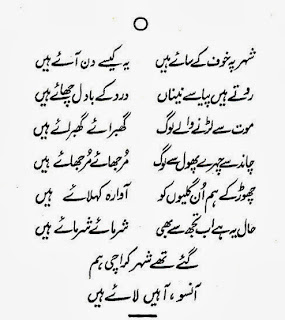 شہر پہ خوف کے سائے ہیں یہ کیسے دن آئے ہیں
روتے ہیں پیاسے نیناں درد کے بادل چھائے ہیں
موت سے لڑنے والے لوگ گھبرائے گھبرائے ہیں
چاند سے چہرے پھول سے لوگ مرجھائے مرجھائے ہیں
چھوڑ کے ہم اُن گلیوں کو آوارہ کہلائے ہیں
حال یہ ہے اب تجھ سے بھی شرمائے شرمائے ہیں
گئے تھے شہر کراچی ہم
آنسو ، آہیں لائے ہیں